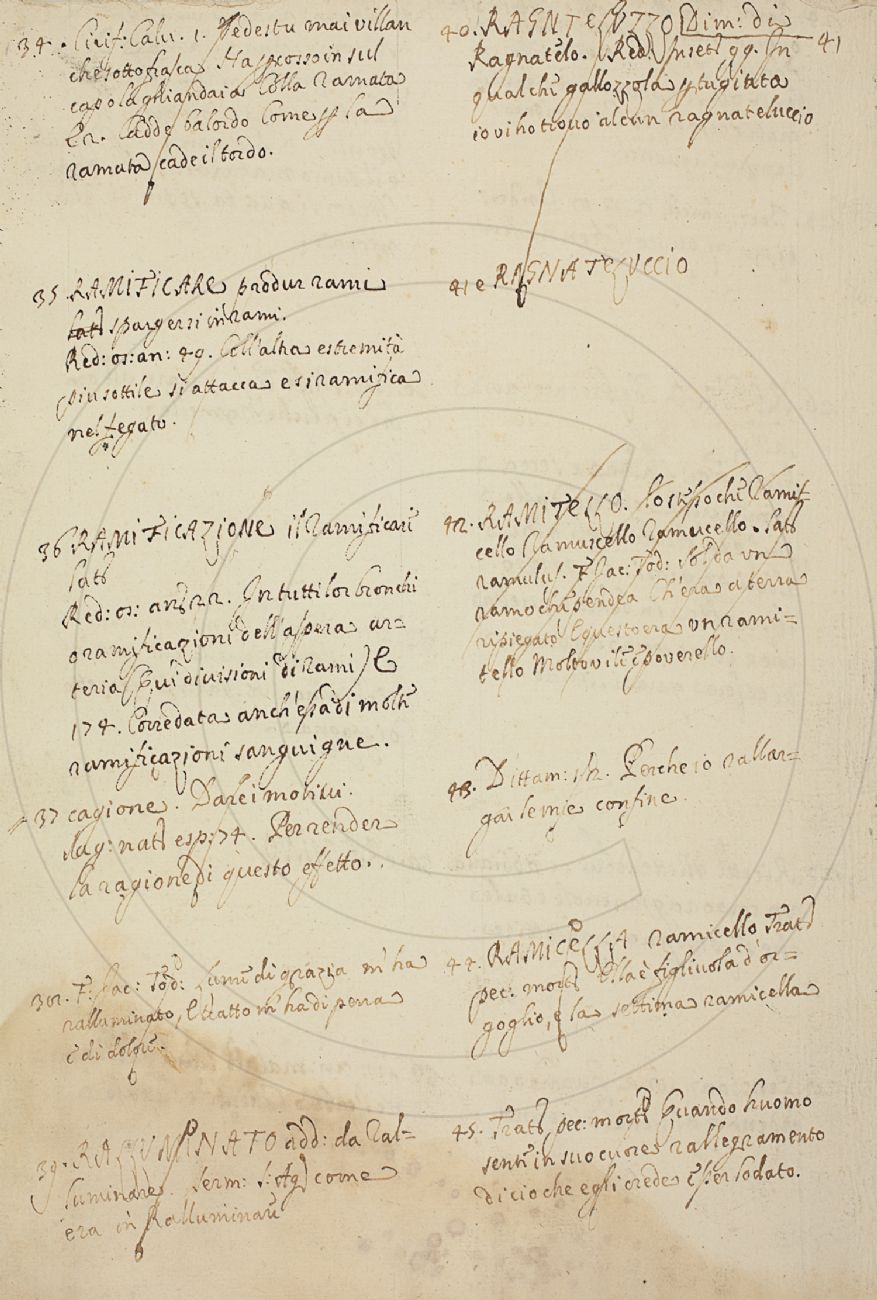 34. Cirif: Calv. 1. Vedestu mai villan
che sotto frasca Ha percosso in sul
capo la ghiandaia Colla ramata
Er. Cadde balordo Come p la
ramata cade il tordo.
35. RAMIFICARE produr rami
spargersi in rami.
Red: os: an: 49. Coll'altra estremità
più sottile si attacca e si ramifica
nel fegato.
36 RAMIFICAZIONE il Ramificare
Lat:
Red: os: an: 22. In tutti lor bronchi
o ramificazioni dell'aspera ar=
teria (qui divisioni di Rami) E
174. Corredata anch'essa di molte
ramificazioni sanguigne.
37 cagione. Dare i motivi.
Sag: nat: esp: 74. Per render
la ragione di questo effetto.
38. F. Jac: Tod: Lume di grazia m'ha
ralluminato, E tratto m'ha di pena
e di dolore.
39. RALLUMINATO add: da Ral=
luminare. Serm: S: Ag: come
era in Ralluminare
40. RAGNATELUZZO Dim: di
41
Ragnatelo. Red. Inset: 99. In
qualche gallozzola p tugitata
io vi ho trovo alcun ragnateluccio
41 e RAGNATELUCCIO
42. RAMITELLO. Lo stesso che Ramif=
cello Ramuscello Ramucello. Lat:
ramulus. F. Jac: Tod: Solda un
ramo che pendea Ch'era a terra
ripiegato E questo era un rami=
tello Molto vile e poverello.
43. Dittam: 1. 12. Perche io rallar=
gai le mie confine.
44. RAMICELLA ramicello Trat:
pec: mort: Ella è figliuola d'or=
goglio, e la settima ramicella
45. Trat: pec: mort: Quando huomo
sente in suo cuore rallegramento
di cio che egli crede esser lodato.